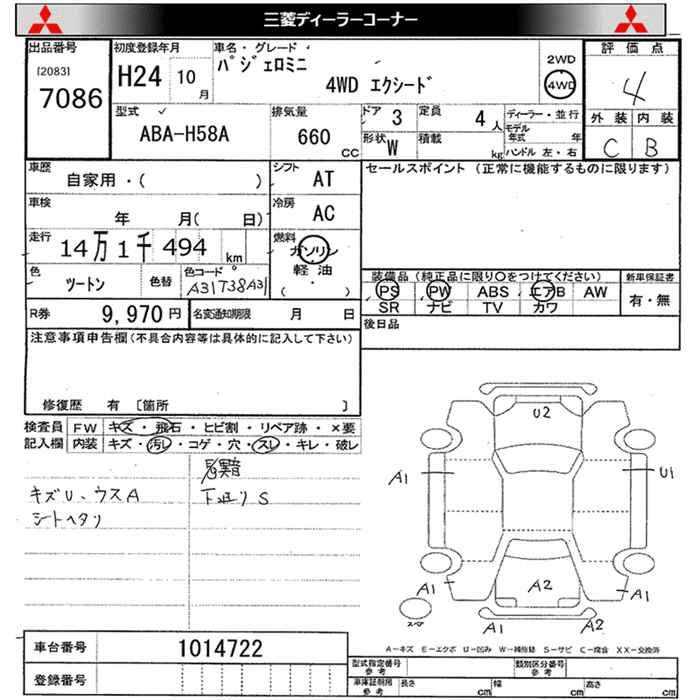 三菱ディーラーコーナー
出品番号
[2083]
7086
初度登録年月
H24 10月
車名・グレード
パジェロミニ
4WD エクシード
2WD
4WD
評価点
4
外装 内装
C B
型式
ABA-H58A
排気量
660 CC
ドア 3
定員 4人
形状 W
積載 kg
ディーラー・並行
モデル年式 年
ハンドル 左・右
車歴
自家用・( )
シフト AT
車検
年 月( 日)
冷房 AC
走行
14万1千494 km
燃料
ガソリン
軽油
( ・ )
色
ツートン
色替
色コード
A31T38A31
R券 9,970円
名変通知期限 月 日
セールスポイント (正常に機能するものに限ります)
装備品(純正品に限り○をつけてください)
PS PW ABS エアB AW
SR ナビ TV カワ
新車保証書
有・無
後日品
注意事項申告欄(不具合内容等は具体的に記入して下さい)
修復歴 有 [箇所 ]
検査員記入欄
FW キズ・飛石・ヒビ割・リペア跡・×要
内装 キズ・汚レ・コゲ・穴・スレ・キレ・破レ
キズU、ウスA
シートヘタリ
下廻りS
U2
A1
U1
A1
A2
A1
A1
A2
A-キズ E-エクボ U-凹み W-補修跡 S-サビ C-腐食 XX-交換済
車台番号 1014722
登録番号
型式指定番号 参考
類別区分番号 参考
車庫証明用 参考
長さ cm
幅 cm
高さ cm